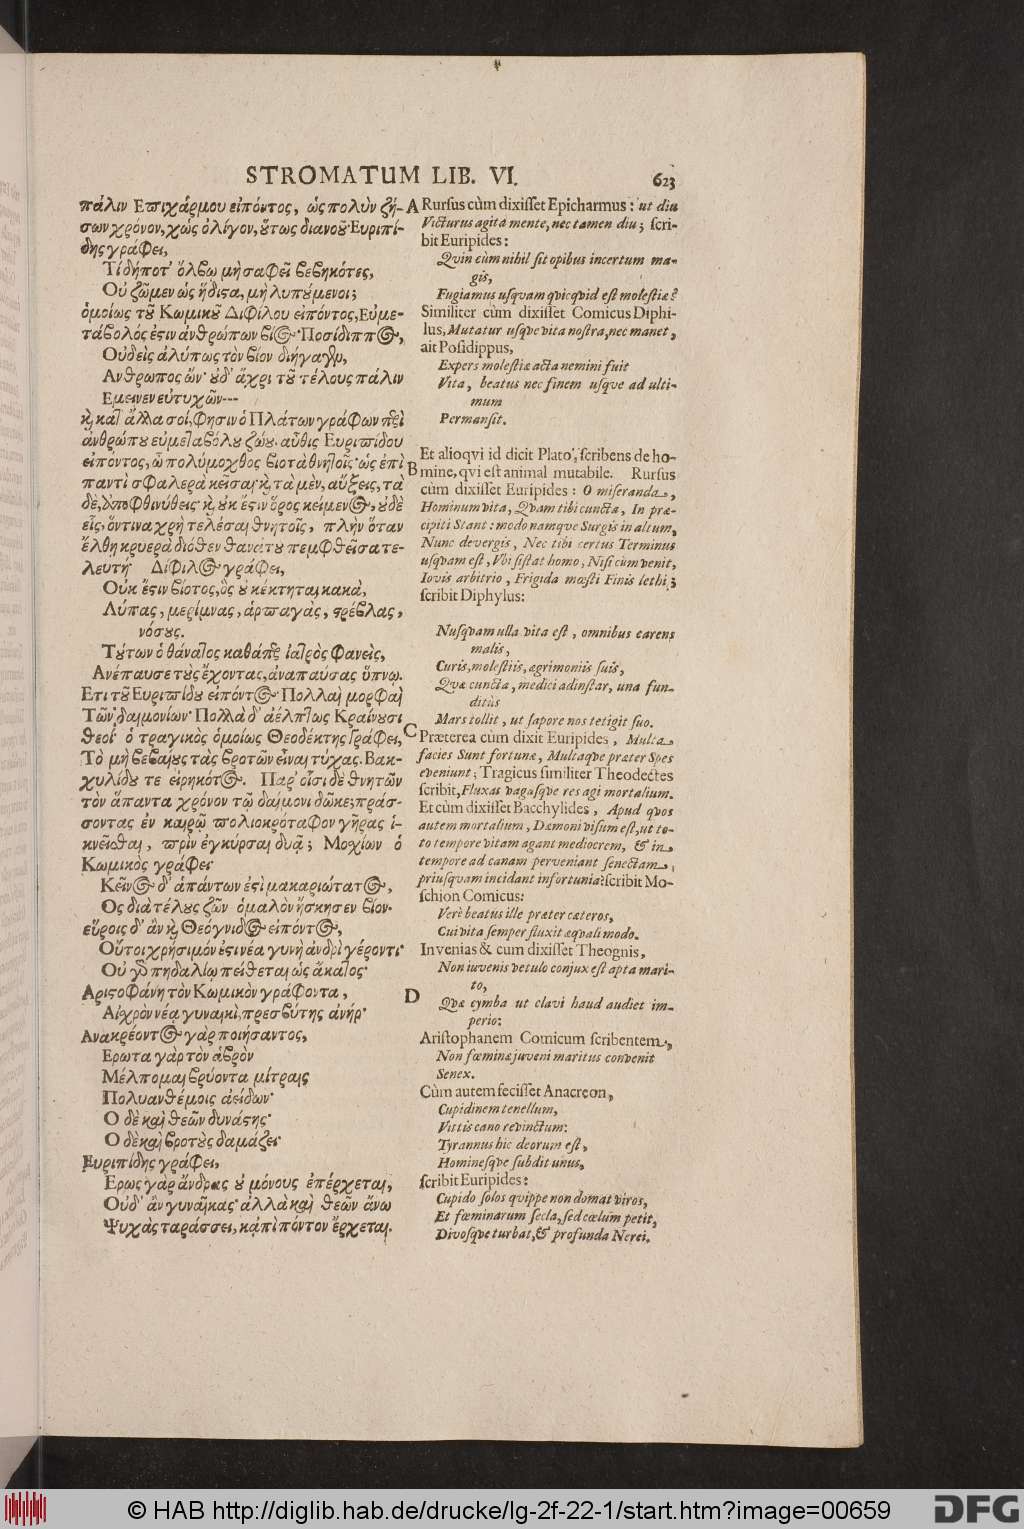 STROMATUM LIB. VI. 623
πάλιν Επιχάρμου εἰπόντος, ὡς πολὺν ζή-
σων χρόνον, χὡς ὀλίγον, ὅτως διανοῦ· Ευριπί-
δης γράφει,
Τί δήποτ' ὄλβῳ μὴ σαφεῖ βεβηκότες,
Οὐ ζῶμεν ὡς ἥδιστα, μὴ λυπούμενοι;
ὁμοίως τοῦ Κωμικοῦ Διφίλου εἰπόντος, Εὐμε-
τάβολός ἐστιν ἀνθρώπων βίος· Ποσίδιππος,
Οὐδεὶς ἀλύπως τὸν βίον διήγαγεν,
Ανθρωπος ὤν· οὐδ' ἄχρι τοῦ τέλους πάλιν
Εμεινεν εὐτυχῶν---
καὶ κατ' ἄλλα σοί, φησιν ὁ Πλάτων γράφων περὶ
ἀνθρώπου εὐμεταβόλου ζώου. αὖθις Ευριπίδου
εἰπόντος, ὦ πολύμοχθος βιοτὰ θνητοῖς· ὡς ἐπὶ
παντὶ σφαλερὰ κεῖσαι καὶ τὰ μὲν, αὔξεις, τὰ
δὲ, ἀποφθινύθεις· καὶ οὐκ ἔστιν ὅρος κείμενος, οὐδὲ
εἷς, ὅντινα χρὴ τελέσαι θνητοῖς, πλὴν ὅταν
ἔλθῃ κρυερὰ διόθεν θανάτου πεμφθεῖσα τε-
λευτή· Δίφιλος γράφει,
Οὐκ ἔστιν βίοτος, ὃς οὐ κέκτηται κακὰ,
Λύπας, μερίμνας, ἁρπαγὰς, στρέβλας,
νόσους.
Τούτων ὁ θάνατος καθάπερ ἰατρὸς φανεὶς,
Ανέπαυσε τοὺς ἔχοντας, ἀναπαύσας ὕπνῳ.
Ετι τοῦ Ευριπίδου εἰπόντος· Πολλαὶ μορφαὶ
Τῶν δαιμονίων· Πολλὰ δ' ἀέλπτως Κραίνουσι
θεοί· ὁ τραγικὸς ὁμοίως Θεοδέκτης γράφει,
Τὸ μὴ βεβαίους τὰς βροτῶν εἶναι τύχας. Βακ-
χυλίδου τε εἰρηκότος. Παρ' οἷσι δὲ θνητῶν
τὸν ἅπαντα χρόνον τῷ δαίμονι δῶκε; πράσ-
σοντας ἐν καιρῷ πολιοκρόταφον γῆρας ἱ-
κνεῖσθαι, πρὶν ἐγκύρσαι δυᾷ; Μοχίων ὁ
Κωμικὸς γράφει·
Κεῖνος δ' ἁπάντων ἐστὶ μακαριώτατος,
Ος διὰ τέλους ζῶν ὁμαλὸν ἤσκησεν βίον·
εὕροις δ' ἂν καὶ Θεόγνιδος εἰπόντος,
Οὔτοι χρήσιμόν ἐστι νέα γυνὴ ἀνδρὶ γέροντι·
Οὐ γὰρ πηδαλίῳ πείθεται ὡς ἄκατος·
Αριστοφάνη τὸν Κωμικὸν γράφοντα,
Αἰσχρὸν νέᾳ γυναικὶ, πρεσβύτης ἀνήρ·
Ανακρέοντος γὰρ ποιήσαντος,
Ερωτα γὰρ τὸν ἁβρὸν
Μέλπομαι βρύοντα μίτραις
Πολυανθέμοις ἀείδων·
Ο δὲ καὶ θεῶν δυνάστης·
Ο δὲ καὶ βροτοὺς δαμάζει·
Ευριπίδης γράφει,
Ερως γὰρ ἄνδρας οὐ μόνους ἐπέρχεται,
Οὐδ' ἂν γυναῖκας· ἀλλὰ καὶ θεῶν ἄνω
Ψυχὰς ταράσσει, κἀπὶ πόντον ἔρχεται.
A
B
C
D
Rursus cùm dixisset Epicharmus: ut diu
Victurus agita mente, nec tamen diu; scri-
bit Euripides:
Quin cùm nihil sit opibus incertum ma-
gis,
Fugiamus usquam qvicqvid est molestiæ?
Similiter cùm dixisset Comicus Diphi-
lus, Mutatur usqve vita nostra, nec manet,
ait Posidippus,
Expers molestiæ acta nemini fuit
Vita, beatus nec finem usqve ad ulti-
mum
Permansit.
Et alioqvi id dicit Plato, scribens de ho-
mine, qvi est animal mutabile. Rursus
cùm dixisset Euripides: O miseranda,
Hominum vita, Qvam tibi cunctæ, In præ-
cipiti Stant: modo namqve Surgis in altum,
Nunc devergis, Nec tibi certus Terminus
usqvam est, Vbi sistat homo, Nisi cùm venit,
Iovis arbitrio, Frigida mœsti Finis lethi;
scribit Diphylus:
Nusqvam ulla vita est, omnibus carens
malis,
Curis, molestiis, ægrimoniis suis,
Qvæ cuncta, medici adinstar, una fun-
ditùs
Mars tollit, ut sapore nos tetigit suo.
Præterea cùm dixit Euripides, Multa
facies Sunt fortunæ, Multaqve præter Spes
eveniunt; Tragicus similiter Theodectes
scribit, Fluxas vagasqve res agi mortalium.
Et cùm dixisset Bacchylides, Apud qvos
autem mortalium, Dæmoni visum est, ut to-
to tempore vitam agant mediocrem, & in
tempore ad canam perveniant senectam,
priusqvam incidant infortunia? scribit Mo-
schion Comicus:
Verè beatus ille præter cæteros,
Cui vita semper fluxit æquali modo.
Invenias & cum dixisset Theognis,
Non iuvenis vetulo conjux est apta mari-
to,
Qvæ cymba ut clavi haud audiet im-
perio:
Aristophanem Comicum scribentem,
Non fœminæ juveni maritus convenit
Senex.
Cùm autem fecisset Anacreon,
Cupidinem tenellum,
Vittis cano revinctum:
Tyrannus hic deorum est,
Hominesqve subdit unus,
scribit Euripides:
Cupido solos qvippe non domat viros,
Et fœminarum secla, sed cœlum petit,
Divosqve turbat, & profunda Nerei.
© HAB http://diglib.hab.de/drucke/lg-2f-22-1/start.htm?image=00659
DFG